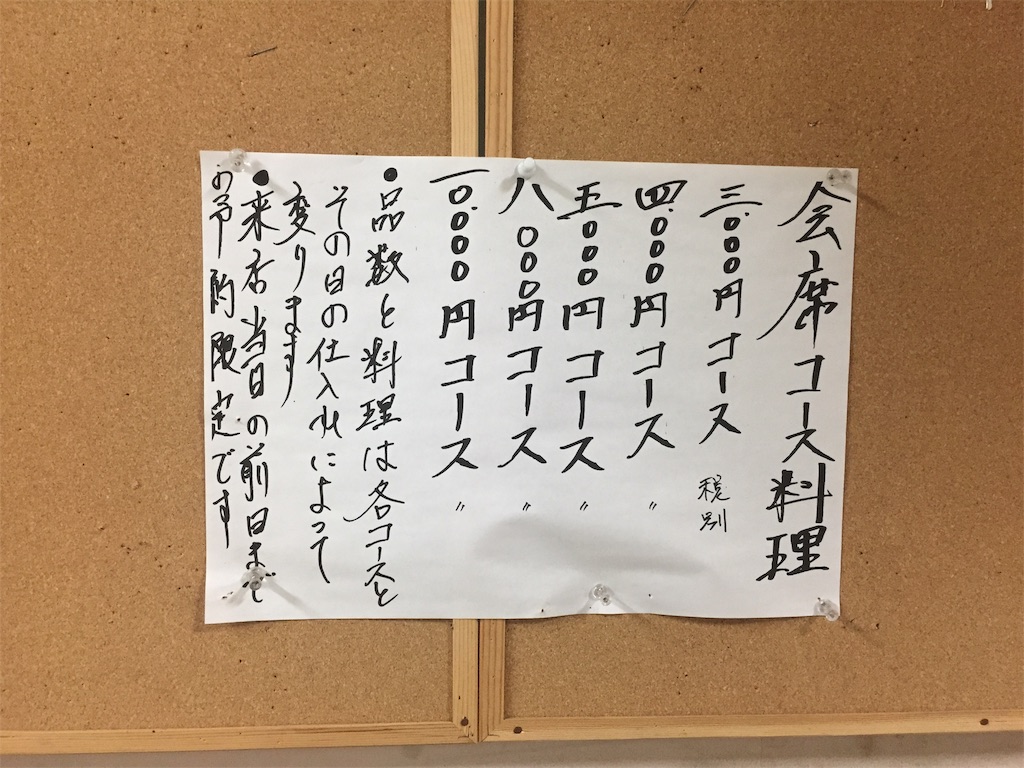 会席コース料理
三、000円コース 税別
四、000円コース 〃
五、000円コース 〃
八、000円コース 〃
一0、000円コース 〃
●品数と料理は各コースと
その日の仕入れによって
変ります
●来店当日の前日まで
お予約限定です